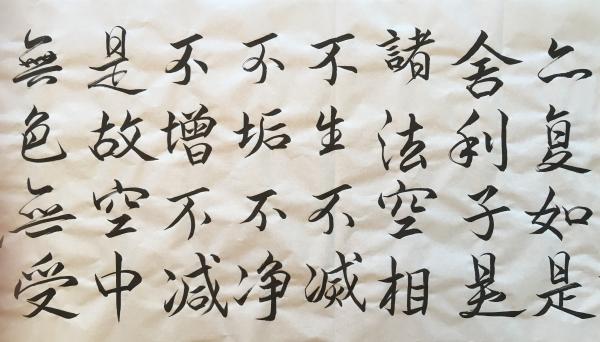 亦复如是
舍利子是
諸法空相
不生不滅
不垢不净
不增不減
是故空中
無色無受